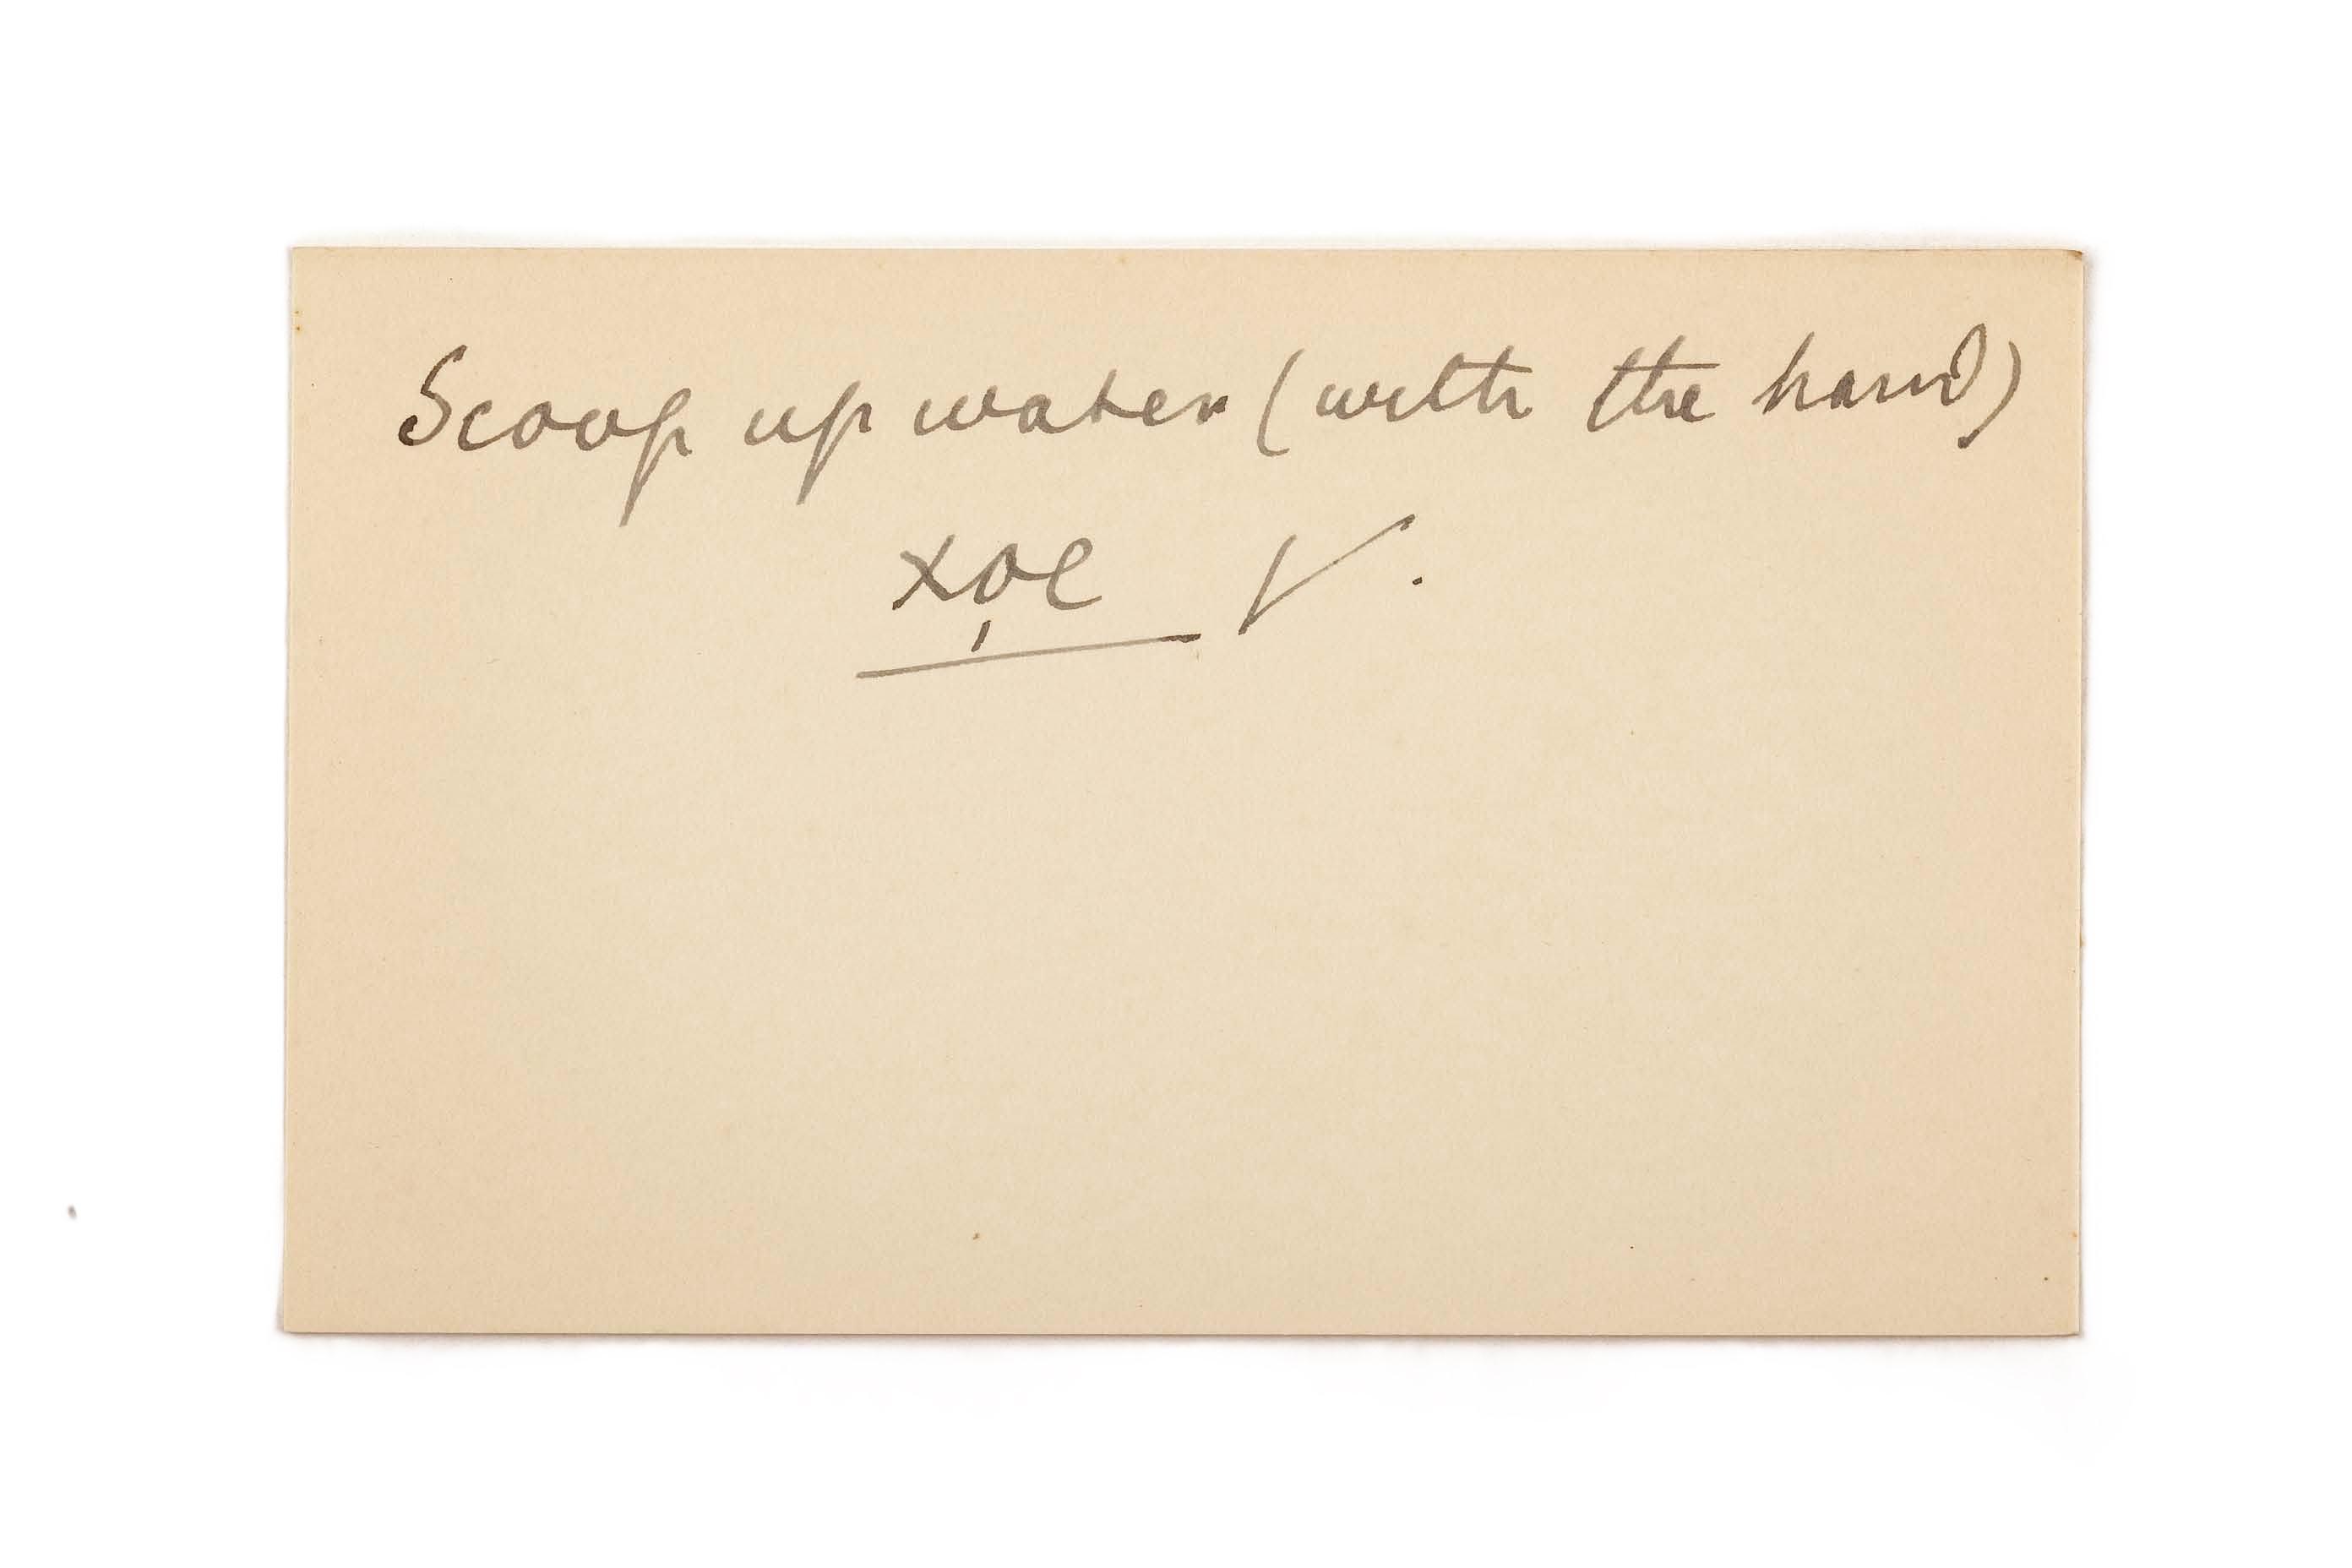 Scoop up water (with the hand)
xo̩e ✓.